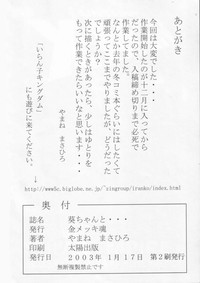 あとがき
今回は大変でした・・・
作業開始したのが十二月に入ってから
だったので、入稿締め切りまで必死で
作業してました。
なんとか去年の冬コミ本ぐらいにはしたくて
頑張ってここまでやりましたが、どうだった
でしょうか？
次に描くときがあったら、少しはゆとりを
もって作業できたらいいなと思います・・・
やまね　まさひろ
「いらん子キングダム」
にも遊びに来てください。
http://www5c.biglobe.ne.jp/~singroup/iranko/index.html
奥　付
誌名　葵ちゃんと・・・
発行　金メッキ魂
著者　やまね　まさひろ
印刷　太陽出版
発行日　２００３年　１月１７日　第２刷発行
無断複製禁止です